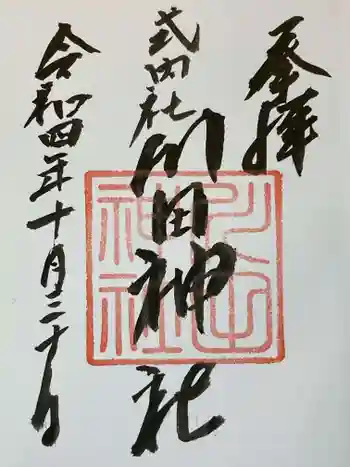 奉拝
式内社
川田神社
令和四年十月三十日
川田神社